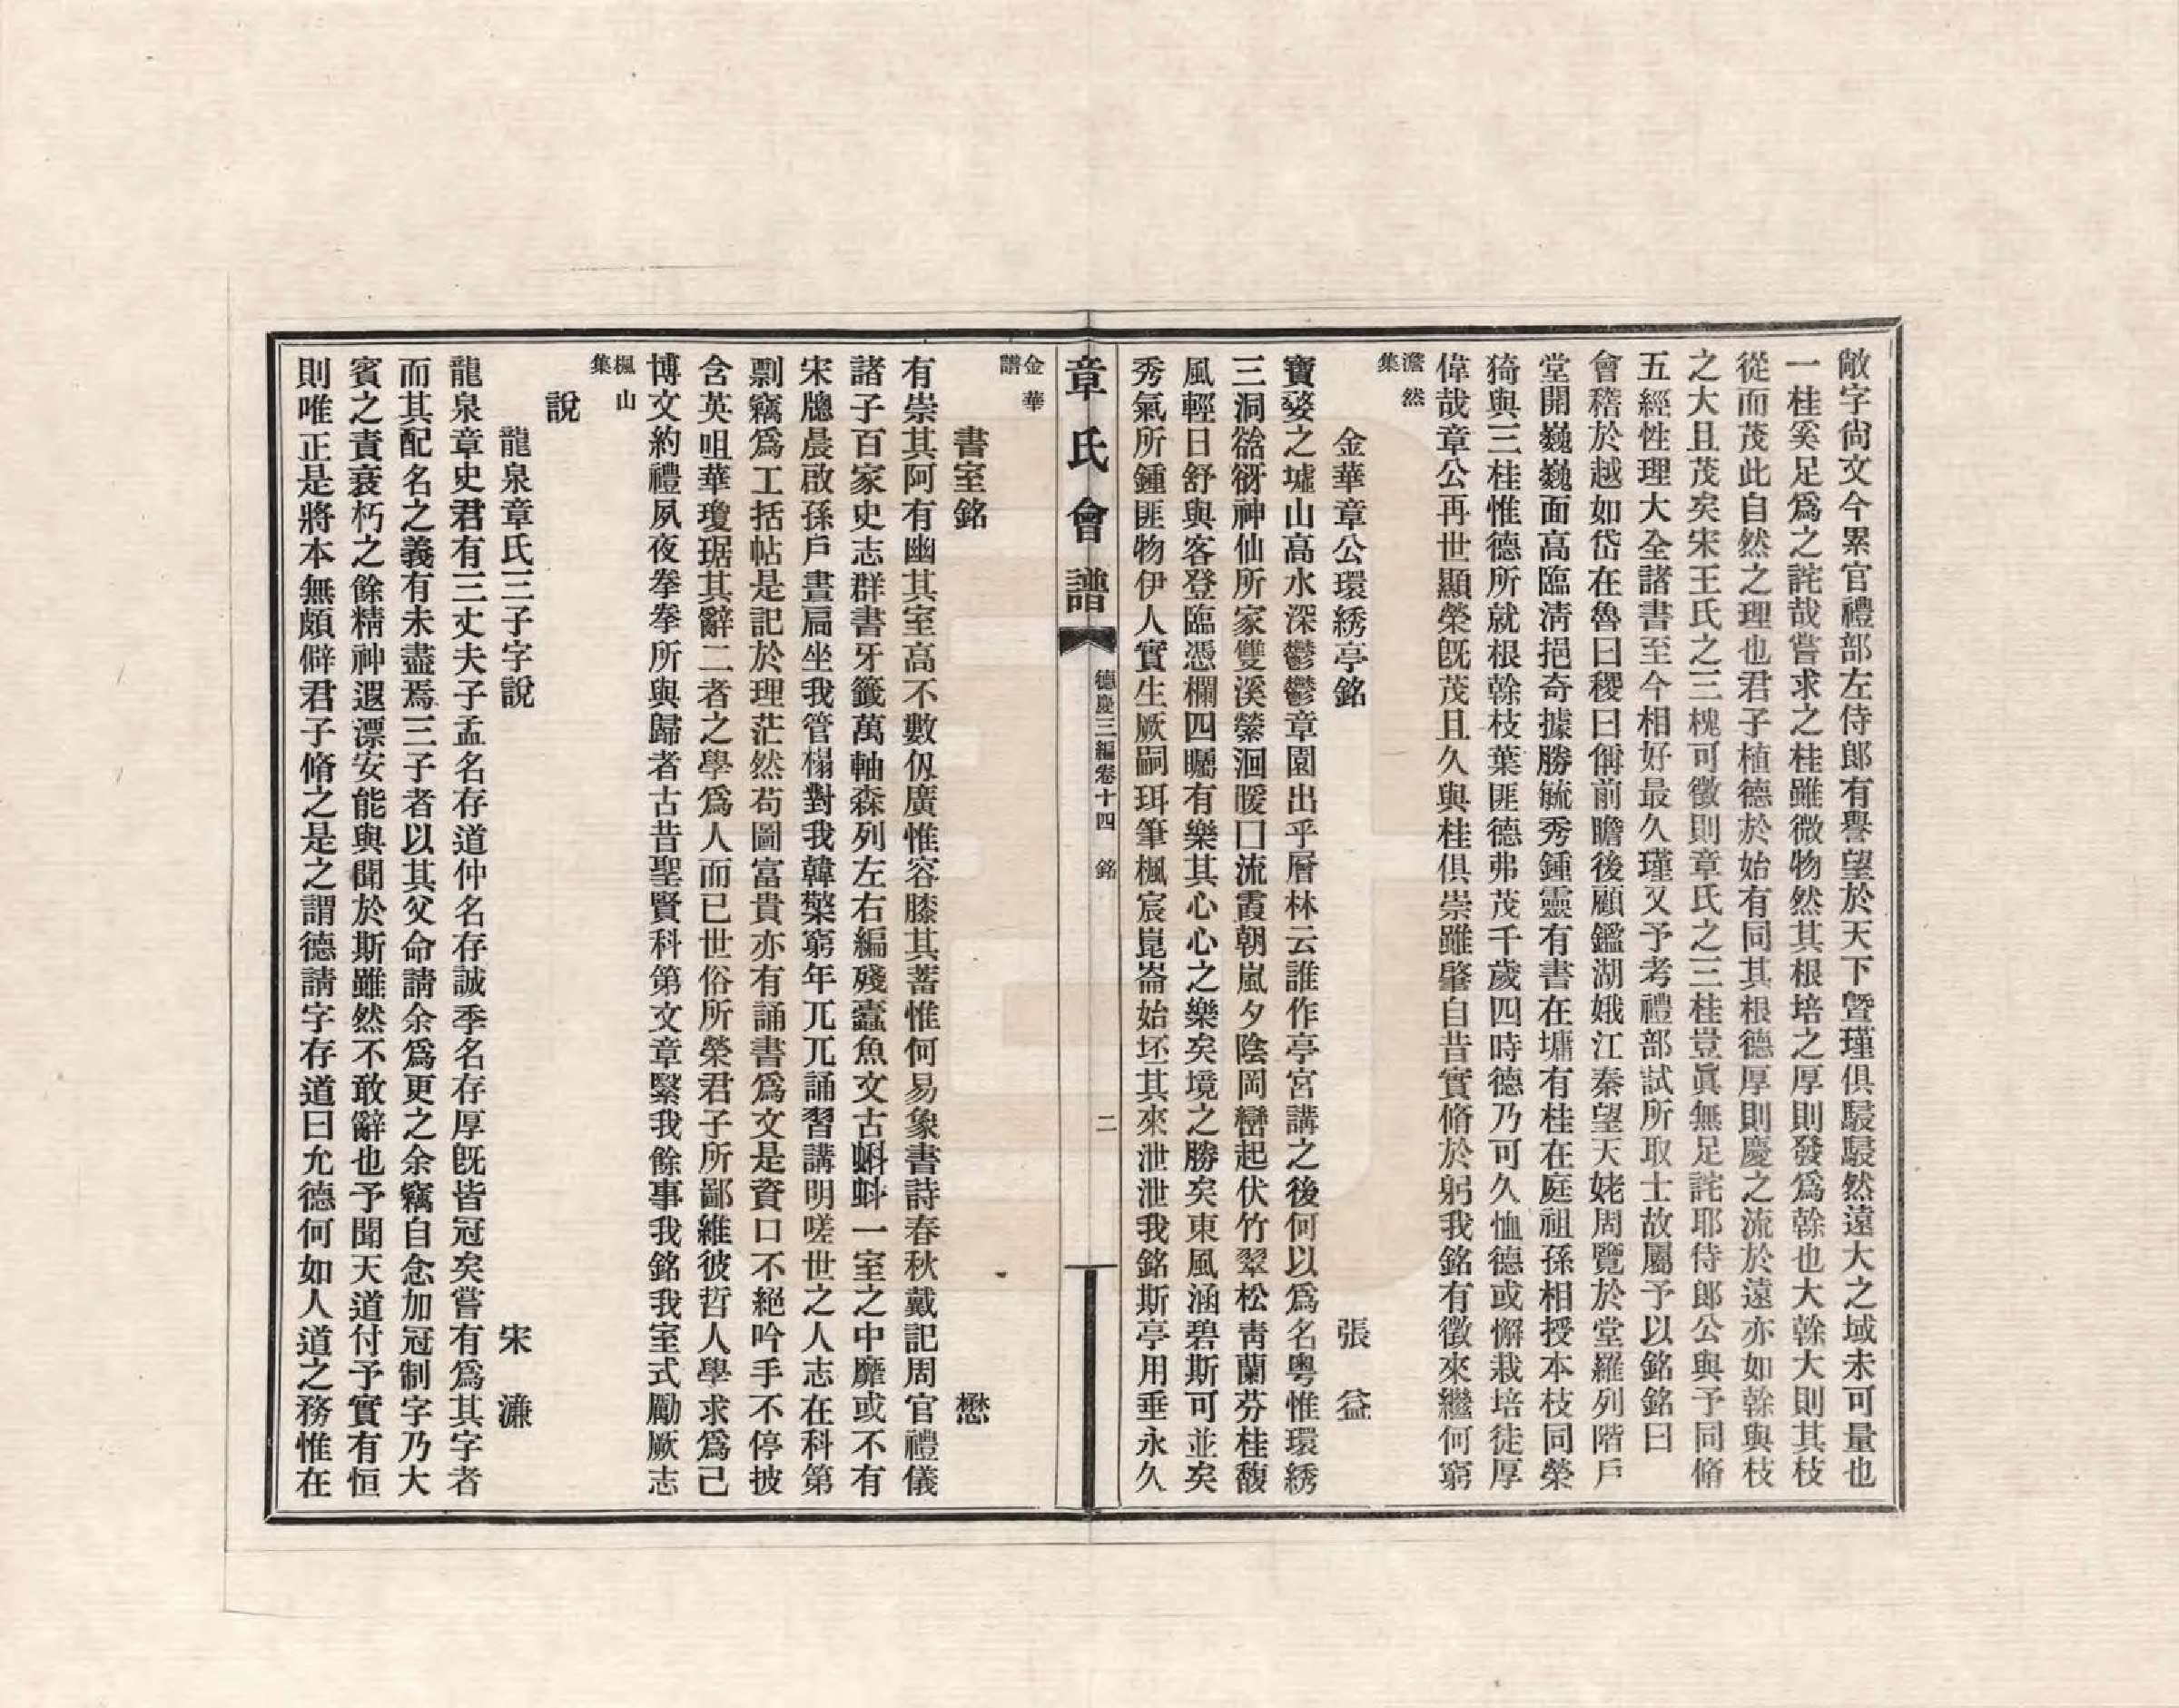 敞字尙文今累官禮部左侍郎有譽望於天下曁瑾俱駸駸然遠大之域未可量也
一桂奚足爲之詫哉嘗求之桂雖微物然其根培之厚則發爲榦也大榦大則其枝
從而茂此自然之理也君子植德於始有同其根德厚則慶之流於遠亦如榦與枝
之大且茂矣宋王氏之三槐可徵則章氏之三桂豈眞無足詫耶侍郎公與予同脩
五經性理大全諸書至今相好最久瑾又予考禮部試所取士故屬予以銘銘曰
會稽於越如岱在魯曰稷曰偁前瞻後顧鑑湖娥江秦望天姥周覽於堂羅列階戶
堂開巍巍面高臨淸挹奇據勝毓秀鍾靈有書在墉有桂在庭祖孫相授本枝同榮
猗與三桂惟德所就根榦枝葉匪德弗茂千歲四時德乃可久恤德或懈栽培徒厚
偉哉章公再世顯榮旣茂且久與桂俱崇雖肇自昔實脩於躬我銘有徵來繼何窮
澹然集
金華章公環綉亭銘 張益
寶婺之墟山高水深鬱鬱章園出乎層林云誰作亭宮講之後何以爲名粵惟環綉
三洞谽谺神仙所家雙溪縈洄暖囗流霞朝嵐夕陰岡巒起伏竹翠松靑蘭芬桂馥
風輕日舒與客登臨憑欄四矚有樂其心心之樂矣境之勝矣東風涵碧斯可並矣
秀氣所鍾匪物伊人實生厥嗣珥筆楓宸崑崙始坯其來泄泄我銘斯亭用垂永久
章氏會譜 德慶三編卷十四 銘 二
金華譜
書室銘 懋
有崇其阿有幽其室高不數仭廣惟容膝其蓄惟何易象書詩春秋戴記周官禮儀
諸子百家史志群書牙籤萬軸森列左右編殘蠧魚文古蝌蚪一室之中靡或不有
宋牕晨啟孫戶晝扃坐我管榻對我韓檠窮年兀兀誦習講明嗟世之人志在科第
剽竊爲工括帖是記於理茫然苟圖富貴亦有誦書爲文是資口不絕吟手不停披
含英咀華瓊琚其辭二者之學爲人而已世俗所榮君子所鄙維彼哲人學求爲己
博文約禮夙夜拳拳所與歸者古昔聖賢科第文章緊我餘事我銘我室式勵厥志
楓山集
說
龍泉章氏三子字說 宋濂
龍泉章史君有三丈夫子孟名存道仲名存誠季名存厚旣皆冠矣嘗有爲其字者
而其配名之義有未盡焉三子者以其父命請余爲更之余竊自念加冠制字乃大
賓之責衰朽之餘精神遐漂安能與聞於斯雖然不敢辭也予聞天道付予實有恒
則唯正是將本無頗僻君子脩之是之謂德請字存道曰允德何如人道之務惟在